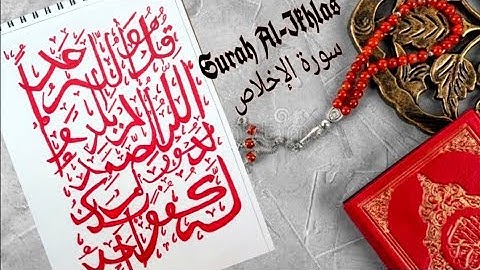 قل هو الله أحد
الله الصمد لم يلد و
لم يولد ولم يكن
له كفوا أحد
Surah Al-Ikhlas
سورة الإخلاص